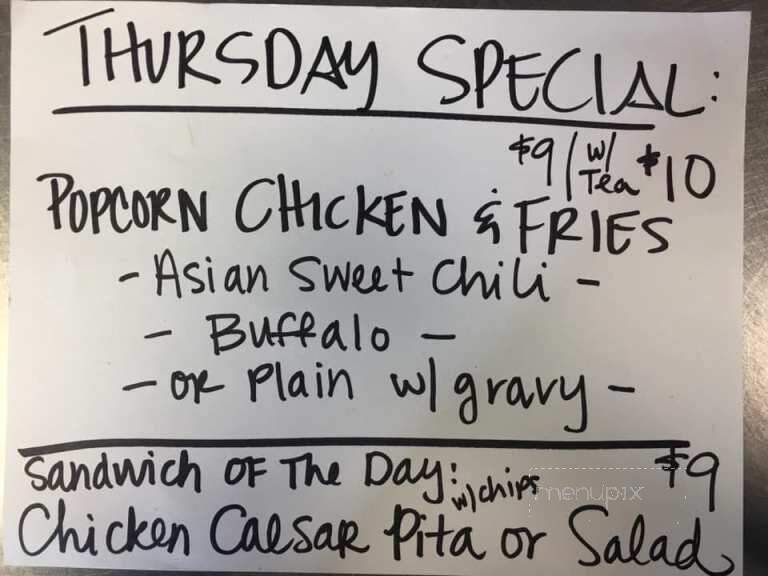 THURSDAY SPECIAL:
$9 / w/ Tea $10
POPCORN CHICKEN & FRIES
- Asian Sweet Chili -
- Buffalo -
- OR Plain w/ gravy -
Sandwich OF The Day: w/ chips $9
menupix
Chicken Caesar Pita or Salad